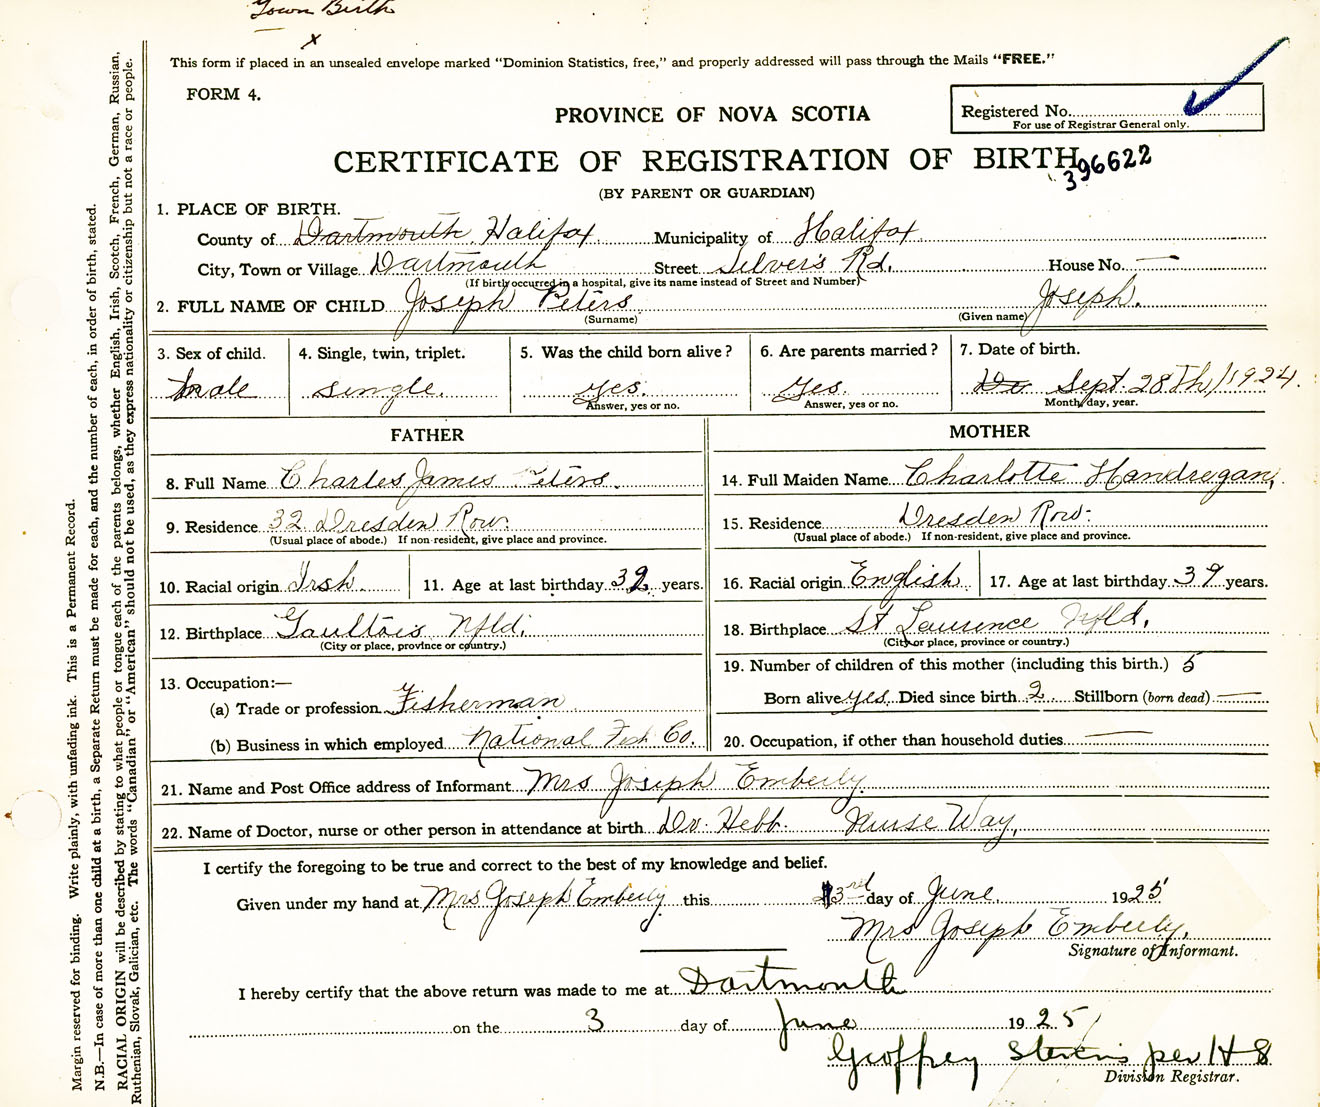 Town Birth
x
This form if placed in an unsealed envelope marked "Dominion Statistics, free," and properly addressed will pass through the Mails "FREE."
FORM 4.
PROVINCE OF NOVA SCOTIA
Registered No.
For use of Registrar General only.
CERTIFICATE OF REGISTRATION OF BIRTH
396622
(BY PARENT OR GUARDIAN)
1. PLACE OF BIRTH.
County of Dartmouth Halifax Municipality of Halifax
City, Town or Village Dartmouth Street Silver's Rd. House No. —
(If birth occurred in a hospital, give its name instead of Street and Number)
2. FULL NAME OF CHILD Joseph Peters Joseph.
(Surname) (Given name)
3. Sex of child. 4. Single, twin, triplet. 5. Was the child born alive? 6. Are parents married? 7. Date of birth.
male single. yes. Yes. De Sept. 28th/1924.
Answer, yes or no. Answer, yes or no. Month, day, year.
FATHER MOTHER
8. Full Name Charles James Peters. 14. Full Maiden Name Charlotte Handregan,
9. Residence 32 Dresden Row. 15. Residence Dresden Row.
(Usual place of abode.) If non-resident, give place and province. (Usual place of abode.) If non-resident, give place and province.
10. Racial origin Irsh 11. Age at last birthday 32 years. 16. Racial origin English 17. Age at last birthday 39 years.
12. Birthplace Gaultois Nfld. 18. Birthplace St Laurence Nfld.
(City or place, province or country.) (City or place, province or country.)
19. Number of children of this mother (including this birth.) 5
13. Occupation:—
(a) Trade or profession Fisherman Born alive yes. Died since birth 2 Stillborn (born dead) —
(b) Business in which employed National Fish Co. 20. Occupation, if other than household duties —
21. Name and Post Office address of Informant Mrs Joseph Emberly
22. Name of Doctor, nurse or other person in attendance at birth Dr. Hebb. Nurse Way,
I certify the foregoing to be true and correct to the best of my knowledge and belief.
Given under my hand at Mrs Joseph Emberly this 3rd day of June. 1925
Mrs Joseph Emberly,
Signature of Informant.
I hereby certify that the above return was made to me at Dartmouth
on the 3 day of June 1925
Geoffrey Stevens per H S
Division Registrar.
Margin reserved for binding. Write plainly, with unfading ink. This is a Permanent Record.
N.B.—In case of more than one child at a birth, a Separate Return must be made for each, and the number of each, in order of birth, stated.
RACIAL ORIGIN will be described by stating to what people or tongue each of the parents belongs, whether English, Irish, Scotch, French, German, Russian,
Ruthenian, Slovak, Galician, etc. The words "Canadian" or "American" should not be used, as they express nationality or citizenship but not a race or people.